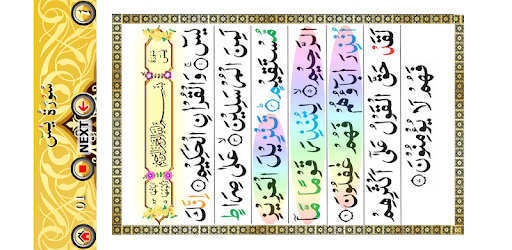 سُورَةُ يٰسٓ
NEXT
01
بِسْمِ اللّٰهِ الرَّحْمٰنِ الرَّحِيْمِ
يٰسٓ ۝ وَالْقُرْاٰنِ الْحَكِيْمِ ۝ اِنَّكَ
لَمِنَ الْمُرْسَلِيْنَ ۝ عَلٰى صِرَاطٍ
مُّسْتَقِيْمٍ ۝ تَنْزِيْلَ الْعَزِيْزِ
الرَّحِيْمِ ۝ لِتُنْذِرَ قَوْمًا مَّآ
اُنْذِرَ اٰبَآؤُهُمْ فَهُمْ غٰفِلُوْنَ ۝
لَقَدْ حَقَّ الْقَوْلُ عَلٰٓى اَكْثَرِهِمْ
فَهُمْ لَا يُؤْمِنُوْنَ ۝